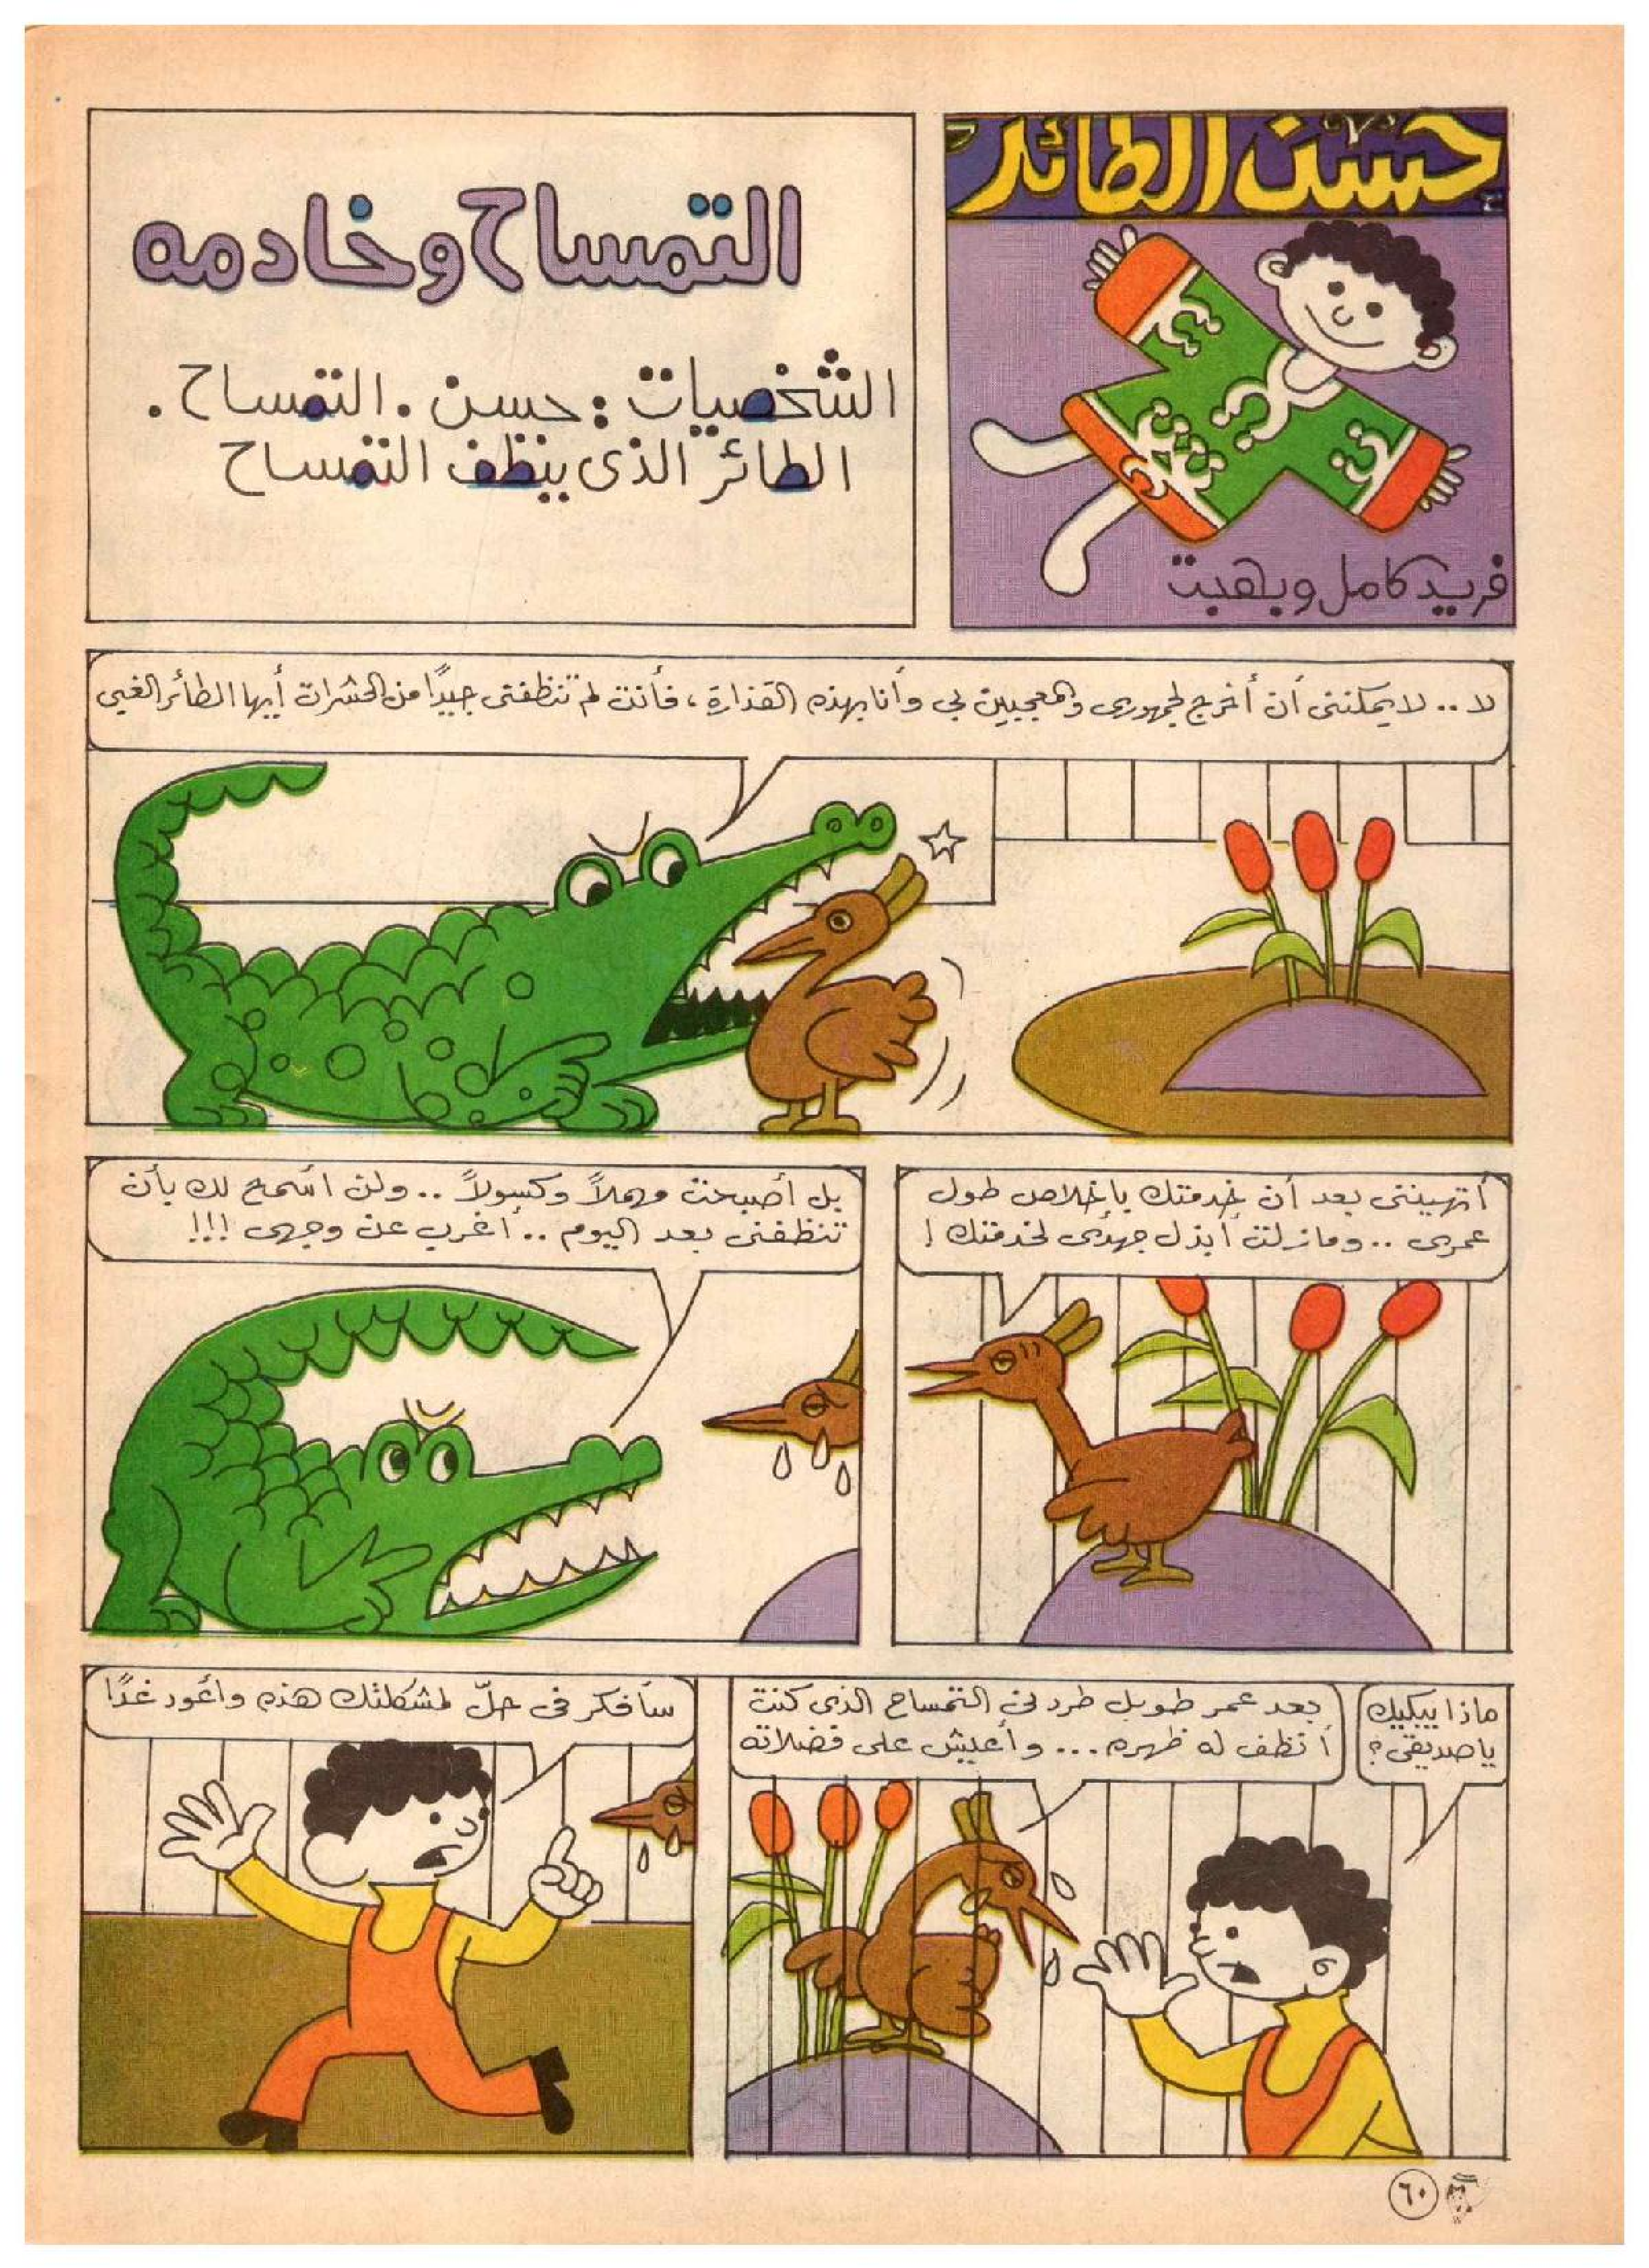 حسن الطائر
فريد كامل وبهجت
التمساح وخادمه
الشخصيات : حسن . التمساح .
الطائر الذى ينظف التمساح
لا .. لا يمكننى أن أخرج لجمهورى والمعجبين بي وأنا بهذه القذارة ، فأنت لم تنظفنى جيدًا من الحشرات أيها الطائر الغبى
أتهيننى بعد أن خدمتك بإخلاص طول
عمرى .. ومازلت أبذل جهدى لخدمتك !
بل أصبحت مهملاً وكسولاً .. ولن أسمح لك بأن
تنظفنى بعد اليوم .. أغرب عن وجهى !!!
ماذا يبكيك
يا صديقى ؟
بعد عمر طويل طردنى التمساح الذى كنت
أنظف له ظهره ... وأعيش على فضلاته
سأفكر فى حلّ لمشكلتك هذه وأعود غدًا
٦٠